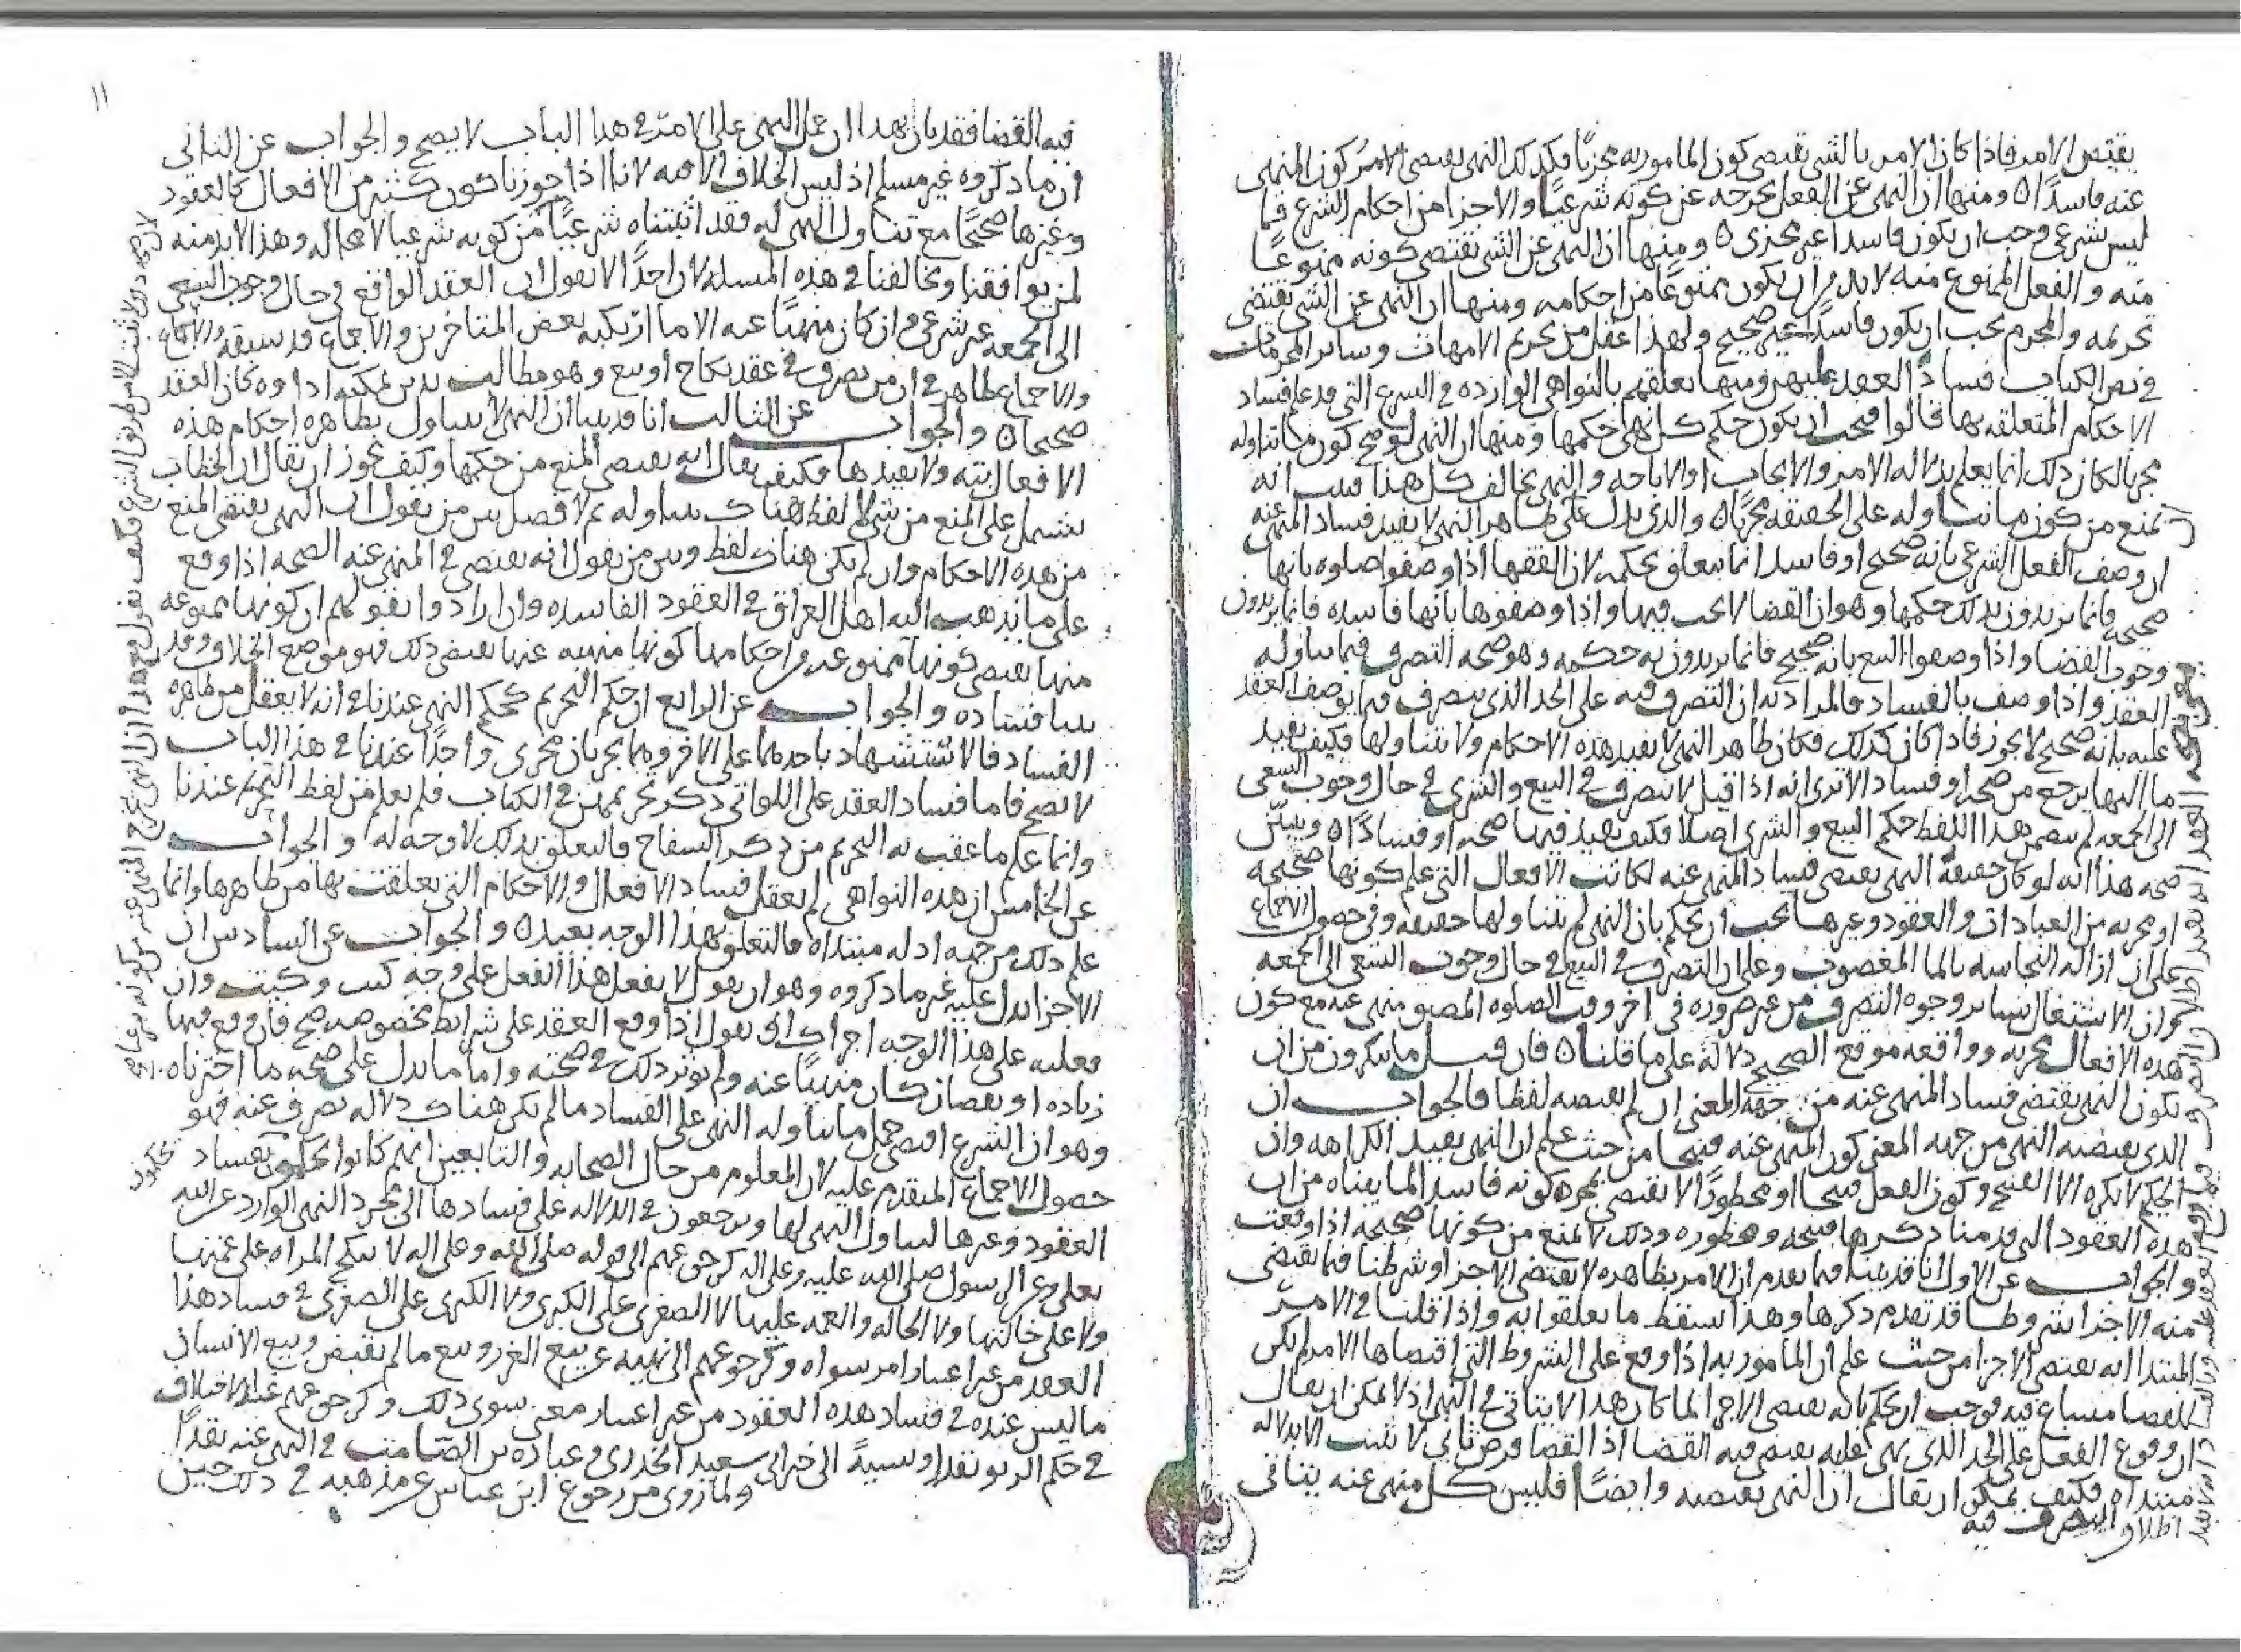 يقتض الامر فاذا كان الامر بالشي يقتضى كون المامور به مجزيًا فكذلك النهى يقتضى كون المنهى
عنه فاسدًا ومنها ان النهى عن الفعل يخرجه عن كونه شرعيًا والاجزا من احكام الشرع فما
ليس بشرعى وجب ان يكون فاسدا غير مجزى ومنها ان النهى عن الشى يقتضى كونه ممنوعًا
منه والفعل الممنوع منه لا بد من ان يكون ممنوعًا من احكامه ومنها ان النهى عن الشى يقتضى
تحريمه والمحرم يجب ان يكون فاسدًا غير صحيح ولهذا عقل من تحريم الامهات وسائر المحرمات
فى نص الكتاب فساد العقد عليهن ومنها تعلقهم بالنواهى الوارده فى الشرع التى قد علم فساد
الاحكام المتعلقه بها قالوا فيجب ان يكون حكم كل نهى حكمها ومنها ان النهى لو صح كون ما تناوله
مجزيا لكان ذلك انما يعلم بدلاله الامر والايجاب او الاباحه والنهى يخالف كل هذا فثبت انه
يمنع من كون ما تناوله على الحقيقه مجزيًا والذى يدل على ان ظاهر النهى لا يفيد فساد المنهى عنه
ان وصف الفعل الشرعى بانه صحيح او فاسد انما يتعلق بحكمه لان الفقها اذا وصفوا صلوه بانها
صحيحه فانما يريدون بذلك حكمها وهو ان القضا لا يجب فيها واذا وصفوها بانها فاسده فانما يريدون
وجوب القضا واذا وصفوا البيع بانه صحيح فانما يريدون به حكمه وهو صحه التصرف فيما تناوله
العقد واذا وصف بالفساد فالمراد به ان التصرف فيه على الحد الذى يتصرف فيما يوصف العقد
عليه بانه صحيح لا يجوز فاذا كان كذلك فكان ظاهر النهى لا يفيد هذه الاحكام ولا تتناولها فكيف يفيد
ما اليها يرجع من صحه او فساد الا ترى انه اذا قيل لا تتصرف فى البيع والشرى فى حال وجوب السعى
الى الجمعه لم يتضمن هذا اللفظ حكم البيع والشرى اصلا فكيف يفيد فيها صحه او فسادًا ويبين
صحه هذا انه لو كان حقيقة النهى يقتضى فساد المنهى عنه لكانت الافعال التى علم كونها صحيحه
او مجزيه من العبادات والعقود وغيرها يجب ان يحكم بان النهى لم يتناولها حقيقه وفى حصول الاجماع
على ان ازاله النجاسه بالما المغصوب وعلى ان التصرف فى البيع فى حال وجوب السعى الى الجمعه
وان الاشتغال بسائر وجوه التصرف من غير ضروره فى اخر وقت الصلوه المضيق منهى عنه مع كون
هذه الافعال مجزيه وواقعه موقع الصحيح دلالة على ما قلناه فان قيل ما ينكرون من ان
يكون النهى يقتضى فساد المنهى عنه من جهة المعنى ان لم يقتضه لفظا فالجواب ان
الذى يقتضيه النهى من جهه المعنى كون المنهى عنه قبيحا من حيث علم ان النهى يفيد الكراهه وان
الحكيم لا يكره الا القبيح وكون الفعل قبيحا او محظورًا لا يقتضى بمجرده كونه فاسدا لما بيناه من ان
هذه العقود التى قدمنا ذكرها قبيحه ومحظوره وذلك لا يمنع من كونها صحيحه اذا وقعت
والجواب عن الاول انا قد بينا فيما تقدم ان الامر بظاهره لا يقتضى الاجزا وشرطنا فيما يقتضى
منه الاجزا شروطا قد تقدم ذكرها وهذا يسقط ما تعلقوا به واذا قلنا فى الامر
المبتدا انه يقتضى الاجزا من حيث علم ان المامور به اذا وقع على الشروط التى اقتضاها الامر لم يكن
للقضا مساغ فيه فوجب ان يحكم بانه يقتضى الاجزا لما كان هذا لا يتاتى فى النهى اذ لا يمكن ان يقال
ان وقوع الفعل على الحد الذى نهى عليه يقتضى فيه القضا اذ القضا فرض ثانى لا يثبت الا بدلاله
مبتداه فكيف يمكن ان يقال ان النهى يقتضيه وايضًا فليس كل منهى عنه يتاتى
اطلاق التصرف فيه
١١
فيه القضا فقد بان بهذا ان حمل النهى على الامر فى هذا الباب لا يصح والجواب عن الثانى
ان ما ذكروه غير مسلم اذ ليس الخلاف الا فيه لانا اذا جوزنا كون كثير من الافعال كالعقود
وغيرها صحيحًا مع تناول النهى له فقد اثبتناه شرعيًا من كونه شرعيا لا محاله وهذا لا بد منه
لمن يوافقنا ويخالفنا فى هذه المسله لان احدًا لا يقول ان العقد الواقع فى حال وجوب السعى
الى الجمعه غير شرعى وان كان منهيًا عنه الا ما ارتكبه بعض المتاخرين والاجماع قد سبقه
والاجماع ظاهر فى ان من تصرف فى عقد نكاح او بيع وهو مطالب بدين يمكنه اداوه كان العقد
صحيحا والجواب عن الثالث انا قد بينا ان النهى لا يتناول بظاهره احكام هذه
الافعال بته ولا يفيدها فكيف يقال انه يقتضى المنع من حكمها وكيف يجوز ان يقال ان الخطاب
يشتمل على المنع من شى لا لفظ هناك يتناوله ثم لا فصل بين من يقول ان النهى يقتضى المنع
من هذه الاحكام وان لم يكن هناك لفظ وبين من يقول انه يقتضى فى المنهى عنه الصحه اذا وقع
على ما يذهب اليه اهل العراق فى العقود الفاسده وان ارادوا بقولهم ان كونها ممنوعه
منها يقتضى كونها ممنوعه من احكامها كونها منهيه عنها يقتضى ذلك فهو موضع الخلاف وقد
بينا فساده والجواب عن الرابع ان حكم التحريم كحكم النهى عندنا فى انه لا يعقل من ظاهره
الفساد فالاستشهاد باحدهما على الاخر وهما يجريان مجرى واحدًا عندنا فى هذا الباب
لا يصح فاما فساد العقد على اللواتى ذكر تحريمهن فى الكتاب فلم يعلم من لفظ التحريم عندنا
وانما علم ما عقب به التحريم من ذكر السفاح فالتعلق بذلك لا وجه له والجواب
عن الخامس ان هذه النواهى لم يعقل فساد الافعال والاحكام التى تعلقت بها من ظاهرها وانما
علم ذلك من جهه ادله مبتداه فالتعلق بهذا الوجه بعيد والجواب عن السادس ان
الاجزا يدل عليه غير ما ذكروه وهو ان يقول لا يفعل هذا الفعل على وجه كيت وكيت وان
فعلته على هذا الوجه اجزاك او يقول اذا وقع العقد على شرايط مخصوصه صح فان وقع فيها
زياده او نقصان كان منهيًا عنه ولم يوثر ذلك فى صحته واما ما يدل على صحه ما اخترناه
وهو ان الشرع اقتضى حمل ما يتناوله النهى على الفساد ما لم يكن هناك دلاله تصرف عنه فهو
حصول الاجماع المتقدم عليه لان المعلوم من حال الصحابه والتابعين انهم كانوا يحكمون بفساد
العقود وغيرها لتناول النهى لها ويرجعون فى الدلاله على فسادها الى مجرد النهى الوارد عن الله
تعلى وعن الرسول صلى الله عليه وعلى اله كرجوعهم الى قوله صلى الله عليه وعلى اله لا تنكح المراه على عمتها
ولا على خالتها ولا الخاله والعمه عليها لا الصغرى على الكبرى ولا الكبرى على الصغرى فى فساد هذا
العقد من غير اعتبار امر سواه وكرجوعهم الى نهيه عن بيع الغرر وبيع ما لم يقبض وبيع الانسان
ما ليس عنده فى فساد هذه العقود من غير اعتبار معنى سوى ذلك وكرجوعهم عند الاختلاف
فى حكم الربو نقدا ونسيةً الى خبر ابى سعيد الخدرى وعباده بن الصامت فى النهى عنه نقدًا
ولما روى من رجوع ابن عباس عن مذهبه فى ذلك حين